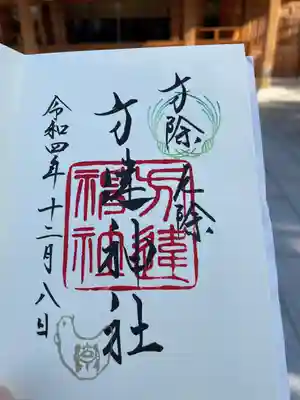 方除 厄除
方違神社
令和四年十二月八日
方違神社